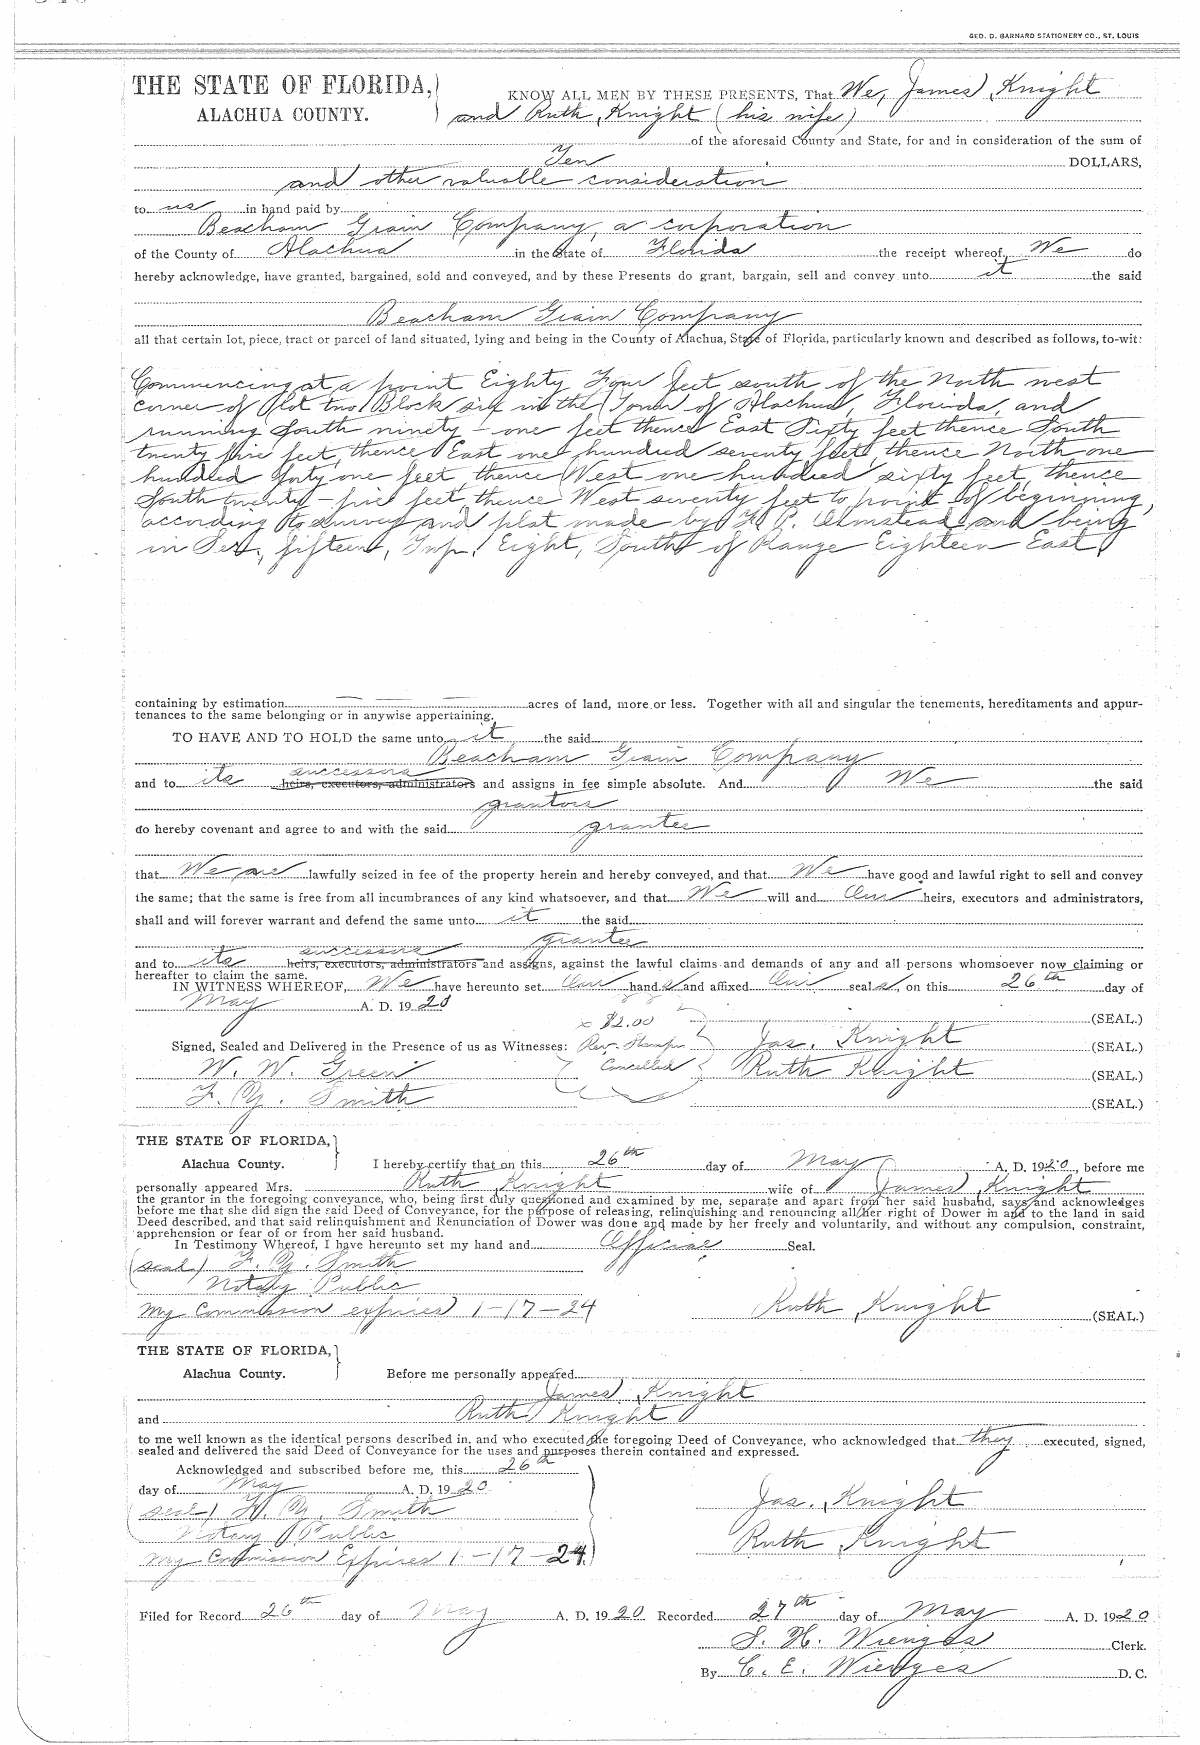 GEO. D. BARNARD STATIONERY CO., ST. LOUIS
THE STATE OF FLORIDA,
ALACHUA COUNTY.
KNOW ALL MEN BY THESE PRESENTS, That We, James Knight
and Ruth Knight (his wife)
of the aforesaid County and State, for and in consideration of the sum of
Ten DOLLARS,
and other valuable consideration
to us in hand paid by
Beacham Grain Company, a corporation
of the County of Alachua in the State of Florida the receipt whereof We do
hereby acknowledge, have granted, bargained, sold and conveyed, and by these Presents do grant, bargain, sell and convey unto it the said
Beacham Grain Company
all that certain lot, piece, tract or parcel of land situated, lying and being in the County of Alachua, State of Florida, particularly known and described as follows, to-wit:
Commencing at a point Eighty Four feet south of the North west
corner of Plot two Block six in the Town of Alachua, Florida, and
running South ninety-one feet thence East Sixty feet thence South
twenty five feet, thence East one hundred seventy feet, thence North one
hundred forty one feet, thence West one hundred sixty feet, thence
South twenty-five feet, thence West seventy feet to point of beginning,
according to survey and plat made by F. P. Olmstead and being
in Sec, fifteen, Twp, Eight, South of Range Eighteen East,
containing by estimation acres of land, more or less. Together with all and singular the tenements, hereditaments and appur-
tenances to the same belonging or in anywise appertaining.
TO HAVE AND TO HOLD the same unto it the said
Beacham Grain Company
successors
and to its heirs, executors, administrators and assigns in fee simple absolute. And We the said
grantors
do hereby covenant and agree to and with the said grantee
that We are lawfully seized in fee of the property herein and hereby conveyed, and that We have good and lawful right to sell and convey
the same; that the same is free from all incumbrances of any kind whatsoever, and that We will and Our heirs, executors and administrators,
shall and will forever warrant and defend the same unto it the said
successors grantee
and to its heirs, executors, administrators and assigns, against the lawful claims and demands of any and all persons whomsoever now claiming or
hereafter to claim the same.
IN WITNESS WHEREOF, We have hereunto set Our hands and affixed Our seals, on this 26th day of
May A. D. 1920
$2.00 (SEAL.)
Signed, Sealed and Delivered in the Presence of us as Witnesses: Rev. Stamps Jas. Knight (SEAL.)
W. W. Green Cancelled Ruth Knight (SEAL.)
F. Y. Smith (SEAL.)
THE STATE OF FLORIDA,
Alachua County. I hereby certify that on this 26th day of May A. D. 1920, before me
personally appeared Mrs. Ruth Knight wife of James Knight
the grantor in the foregoing conveyance, who, being first duly questioned and examined by me, separate and apart from her said husband, says and acknowledges
before me that she did sign the said Deed of Conveyance, for the purpose of releasing, relinquishing and renouncing all her right of Dower in and to the land in said
Deed described, and that said relinquishment and Renunciation of Dower was done and made by her freely and voluntarily, and without any compulsion, constraint,
apprehension or fear of or from her said husband.
In Testimony Whereof, I have hereunto set my hand and Official Seal.
(seal) F. Y. Smith
Notary Public
My Commission expires 1-17-24 Ruth Knight (SEAL.)
THE STATE OF FLORIDA,
Alachua County. Before me personally appeared
James Knight
and Ruth Knight
to me well known as the identical persons described in, and who executed the foregoing Deed of Conveyance, who acknowledged that they executed, signed,
sealed and delivered the said Deed of Conveyance for the uses and purposes therein contained and expressed.
Acknowledged and subscribed before me, this 26th
day of May A. D. 1920 Jas. Knight
(seal) F. Y. Smith
Notary Public Ruth Knight
My Commission Expires 1-17-24
Filed for Record 26th day of May A. D. 1920 Recorded 27th day of May A. D. 1920
S. H. Wienges Clerk.
By C. E. Wienges D. C.